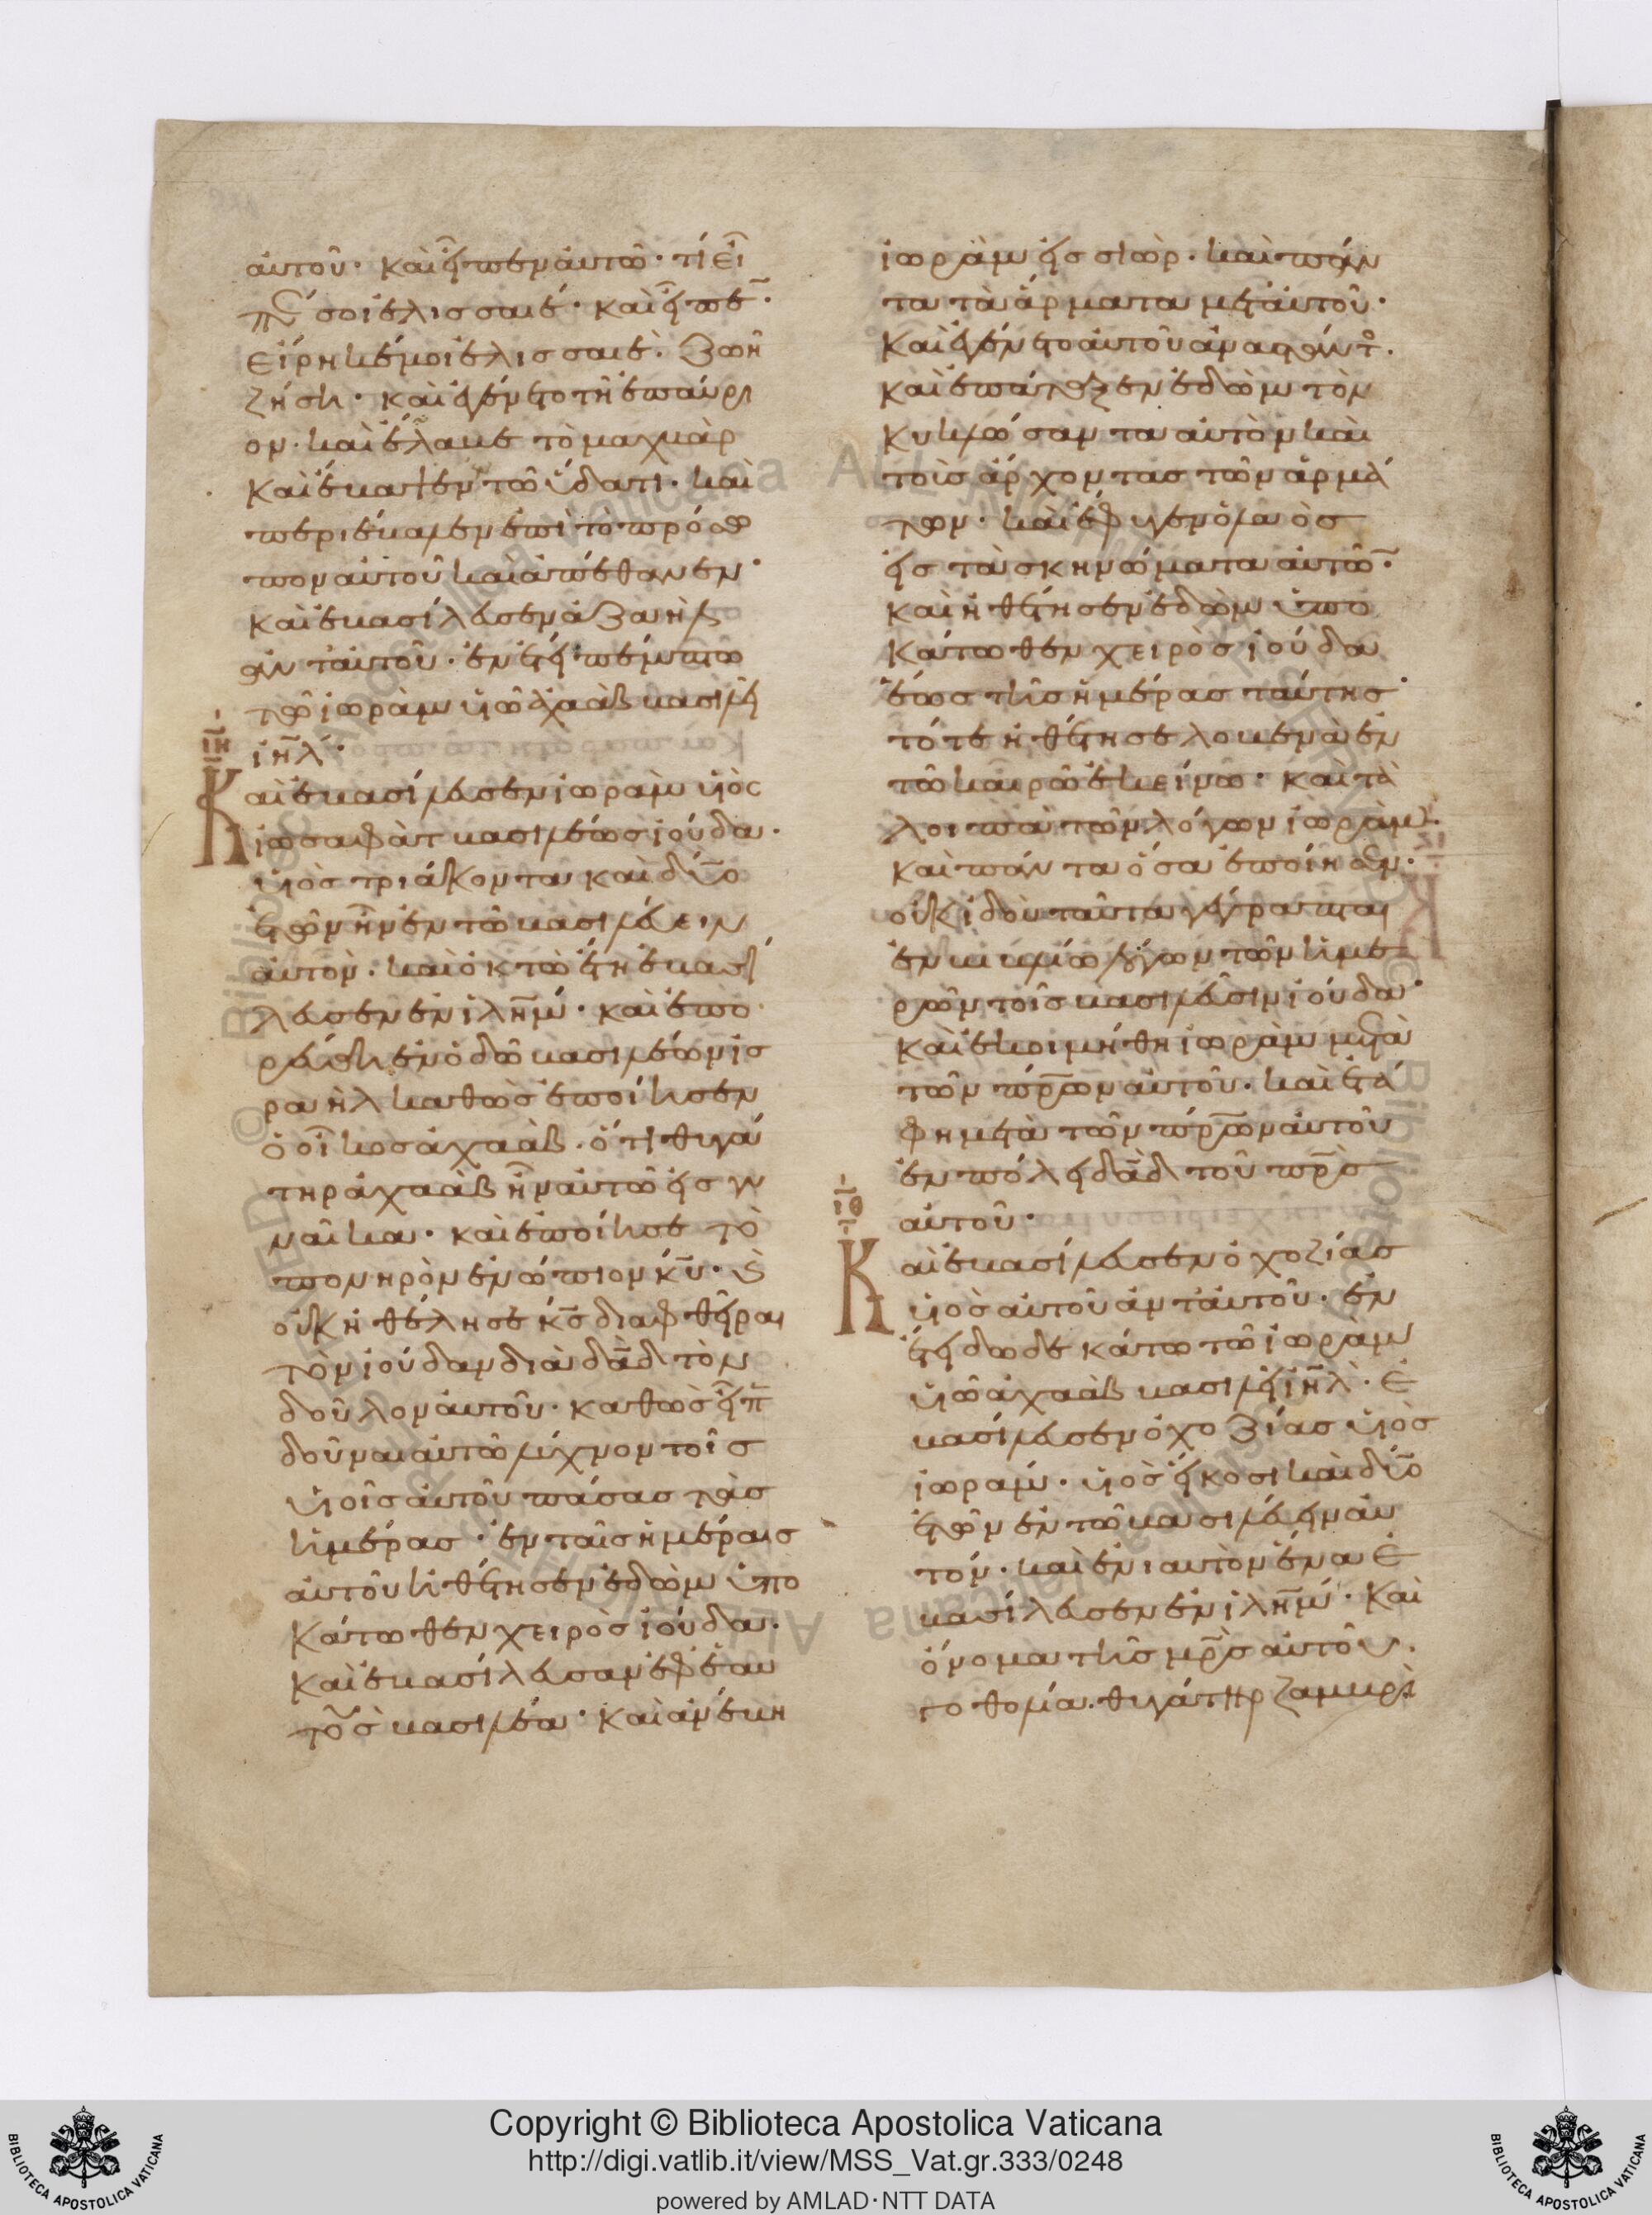 αὐτοῦ· καὶ εἶπεν αὐτῶ· τί εἶ
πέ σοι ἐλισσαιέ· καὶ εἶπε·
εἴρηκέ μοι ἐλισσαιέ· ζωῆ
ζήση· καὶ ἐγένετο τῆ ἐπαύρι
ον· καὶ ἔλαβε τὸ μαχβὰρ
καὶ ἔβαψεν τῶ ὕδατι· καὶ
περιέβαλεν ἐπὶ τὸ πρόσω
πον αὐτοῦ καὶ ἀπέθανεν·
καὶ ἐβασίλευσεν ἀζαὴλ
ἀντ αὐτοῦ· ἐν ἔτει πέμπτω
τῶ ἰωρὰμ υἱῶ ἀχαὰβ βασιλεῖ
ἰη̅λ·
ιη
Καὶ ἐβασίλευσεν ἰωρὰμ υἱὸς
ἰωσαφὰτ βασιλέως ἰούδα·
υἱὸς τριάκοντα καὶ δύο
ἐτῶν ἦν ἐν τῶ βασιλεύειν
αὐτόν· καὶ ὀκτὼ ἔτη ἐβασί
λευσεν ἐν ἰλη̅μ· καὶ ἐπο
ρεύθη ἐν ὁδῶ βασιλέων ἰσ
ραὴλ καθὼς ἐποίησεν
ὁ οἶκος ἀχαάβ· ὅτι θυγά
τηρ ἀχαὰβ ἦν αὐτῶ εἰς γυ
ναῖκα· καὶ ἐποίησε τὸ
πονηρὸν ἐνώπιον κ̅υ· καὶ
οὐκ ἠθέλησε κ̅ς διαφθεῖραι
τὸν ἰούδαν διὰ δα̅δ τὸν
δοῦλον αὐτοῦ· καθὼς εἶπ
δοῦναι αὐτῶ λύχνον τοῖς
υἱοῖς αὐτοῦ πάσας τὰς
ἡμέρας· ἐν ταῖς ἡμέραις
αὐτοῦ ἠθέτησεν ἐδὼμ ὑπο
κάτωθεν χειρὸς ἰούδα·
καὶ ἐβασίλευσαν ἐφ ἑαυ
τοὺς βασιλέα· καὶ ἀνέβη
ἰωρὰμ εἰς σιώρ· καὶ πάν
τα τὰ ἅρματα μετ αὐτοῦ·
καὶ ἐγένετο αὐτοῦ ἀναστάντο·
καὶ ἐπάταξεν ἐδὼμ τὸν
κυκλώσαντα αὐτὸν καὶ
τοὺς ἄρχοντας τῶν ἁρμά
των· καὶ ἔφυγεν ὁ λαὸς
εἰς τὰ σκηνώματα αὐτῶ·
καὶ ἠθέτησεν ἐδὼμ ὑπο
κάτωθεν χειρὸς ἰούδα
ἕως τῆς ἡμέρας ταύτης·
τότε ἠθέτησε λοβενὰ ἐν
τῶ καιρῶ ἐκείνω· καὶ τὰ
λοιπὰ τῶν λόγων ἰωράμ·
καὶ πάντα ὅσα ἐποίησεν·
οὐκ ἰδοὺ ταῦτα γέγραπται
ἐν βιβλίω λόγων τῶν ἡμε
ρῶν τοῖς βασιλεῦσιν ἰούδα·
καὶ ἐκοιμήθη ἰωρὰμ μετὰ
τῶν π̅ρ̅ων αὐτοῦ· καὶ ἐτά
φη μετὰ τῶν π̅ρ̅ων αὐτοῦ
ἐν πόλει δα̅δ τοῦ π̅ρ̅ς
αὐτοῦ·
ιθ
Καὶ ἐβασίλευσεν ὀχοζίας
υἱὸς αὐτοῦ ἀντ αὐτοῦ· ἐν
ἔτει δωδεκάτω τῶ ἰωρὰμ
υἱῶ ἀχαὰβ βασιλεῖ ἰη̅λ· ἐ
βασίλευσεν ὀχοζίας υἱὸς
ἰωράμ· υἱὸς εἴκοσι καὶ δύο
ἐτῶν ἐν τῶ βασιλεύειν αὐ
τόν· καὶ ἐνιαυτὸν ἕνα ἐ
βασίλευσεν ἐν ἰλη̅μ· καὶ
ὄνομα τῆς μ̅ρ̅ς αὐτοῦ·
γοθολία· θυγάτηρ ζαμβρὶ
Copyright © Biblioteca Apostolica Vaticana
http://digi.vatlib.it/view/MSS_Vat.gr.333/0248
powered by AMLAD·NTT DATA
BIBLIOTECA APOSTOLICA VATICANA
BIBLIOTECA APOSTOLICA VATICANA